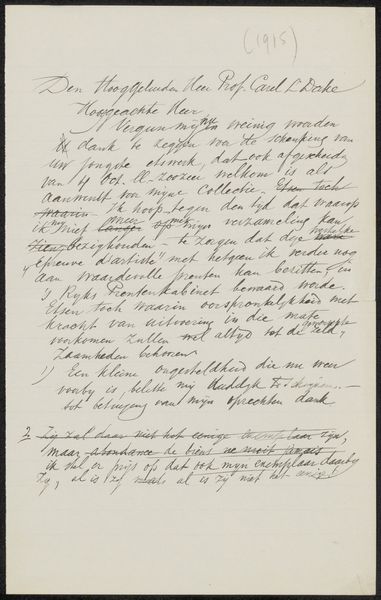 (1915)
Den Hooggeleerden Heer Prof. Carel L Dake
Hooggeachte Heer,
Vergun mij nu weinig woorden
dank te zeggen voor de schenking van
uw jongste etswerk, dat ook afgescheiden
van 4 Oct. ll. zoozeer welkom is als
aanwinst voor mijne Collectie. Etsen toch
waarin Ik hoop tegen den tijd dat waarop
ik mij niet meer met mijn verzameling kan
bezighouden te zorgen dat deze
"Epreuve d'artiste" met hetgeen ik verder nog
aan waardevolle prenten kan bezitten in
's Rijks Prentenkabinet bewaard worde.
Etsen toch waarin oorspronkelijkheid met
kracht van uitvoering in die mate
voorkomen zullen wel altijd tot de
zaamheden behooren
1) Een kleine ongesteldheid die nu weer
voorbij is, belette mij
tot betuiging van mijn oprechten dank
2. Zij zal daar niet het eenige exemplaar zijn,
maar abondance de biens ne nuit jamais
ik stel er prijs op dat ook mijn exemplaar daarbij
zij, al is zij al is zij niet het